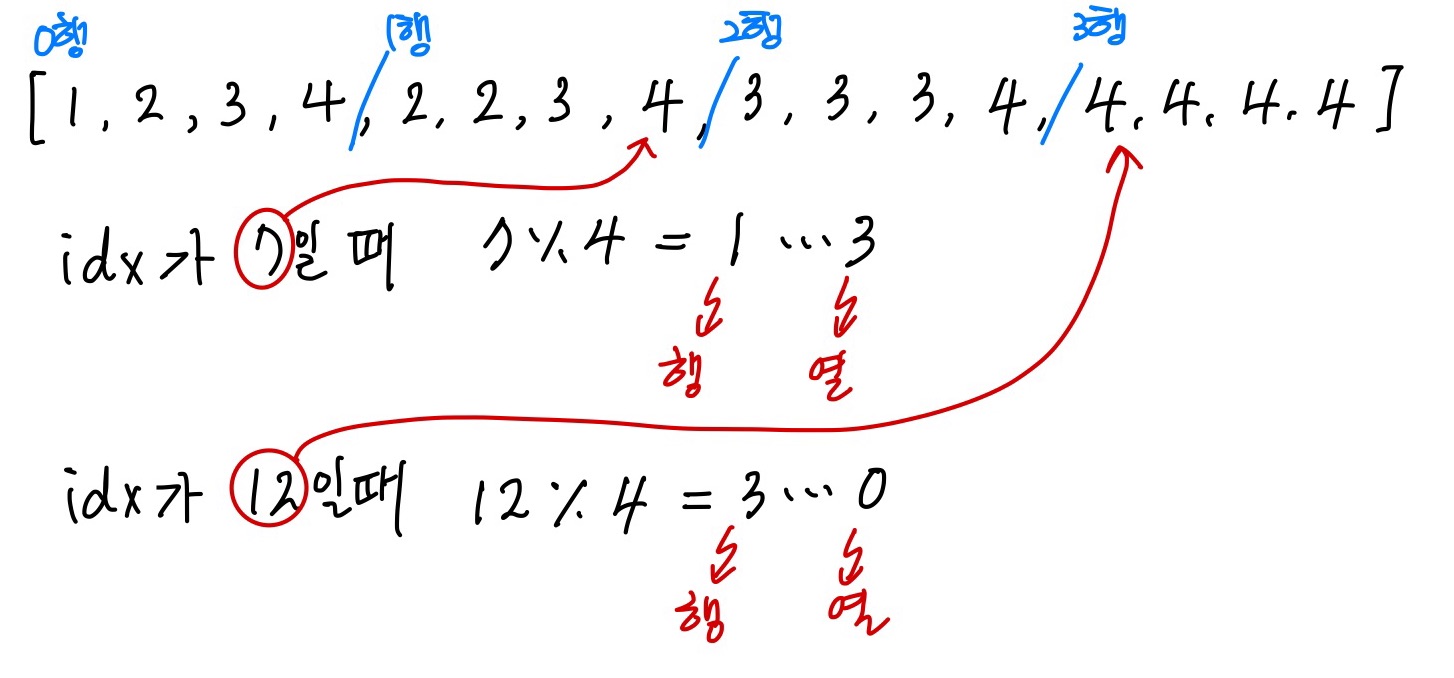 0행 1행 2행 3행
[1, 2, 3, 4, 2, 2, 3, 4, 3, 3, 3, 4, 4. 4. 4. 4]
idx가 7일 때 7 % 4 = 1 … 3
행 열
idx가 12일때 12 % 4 = 3 … 0
행 열